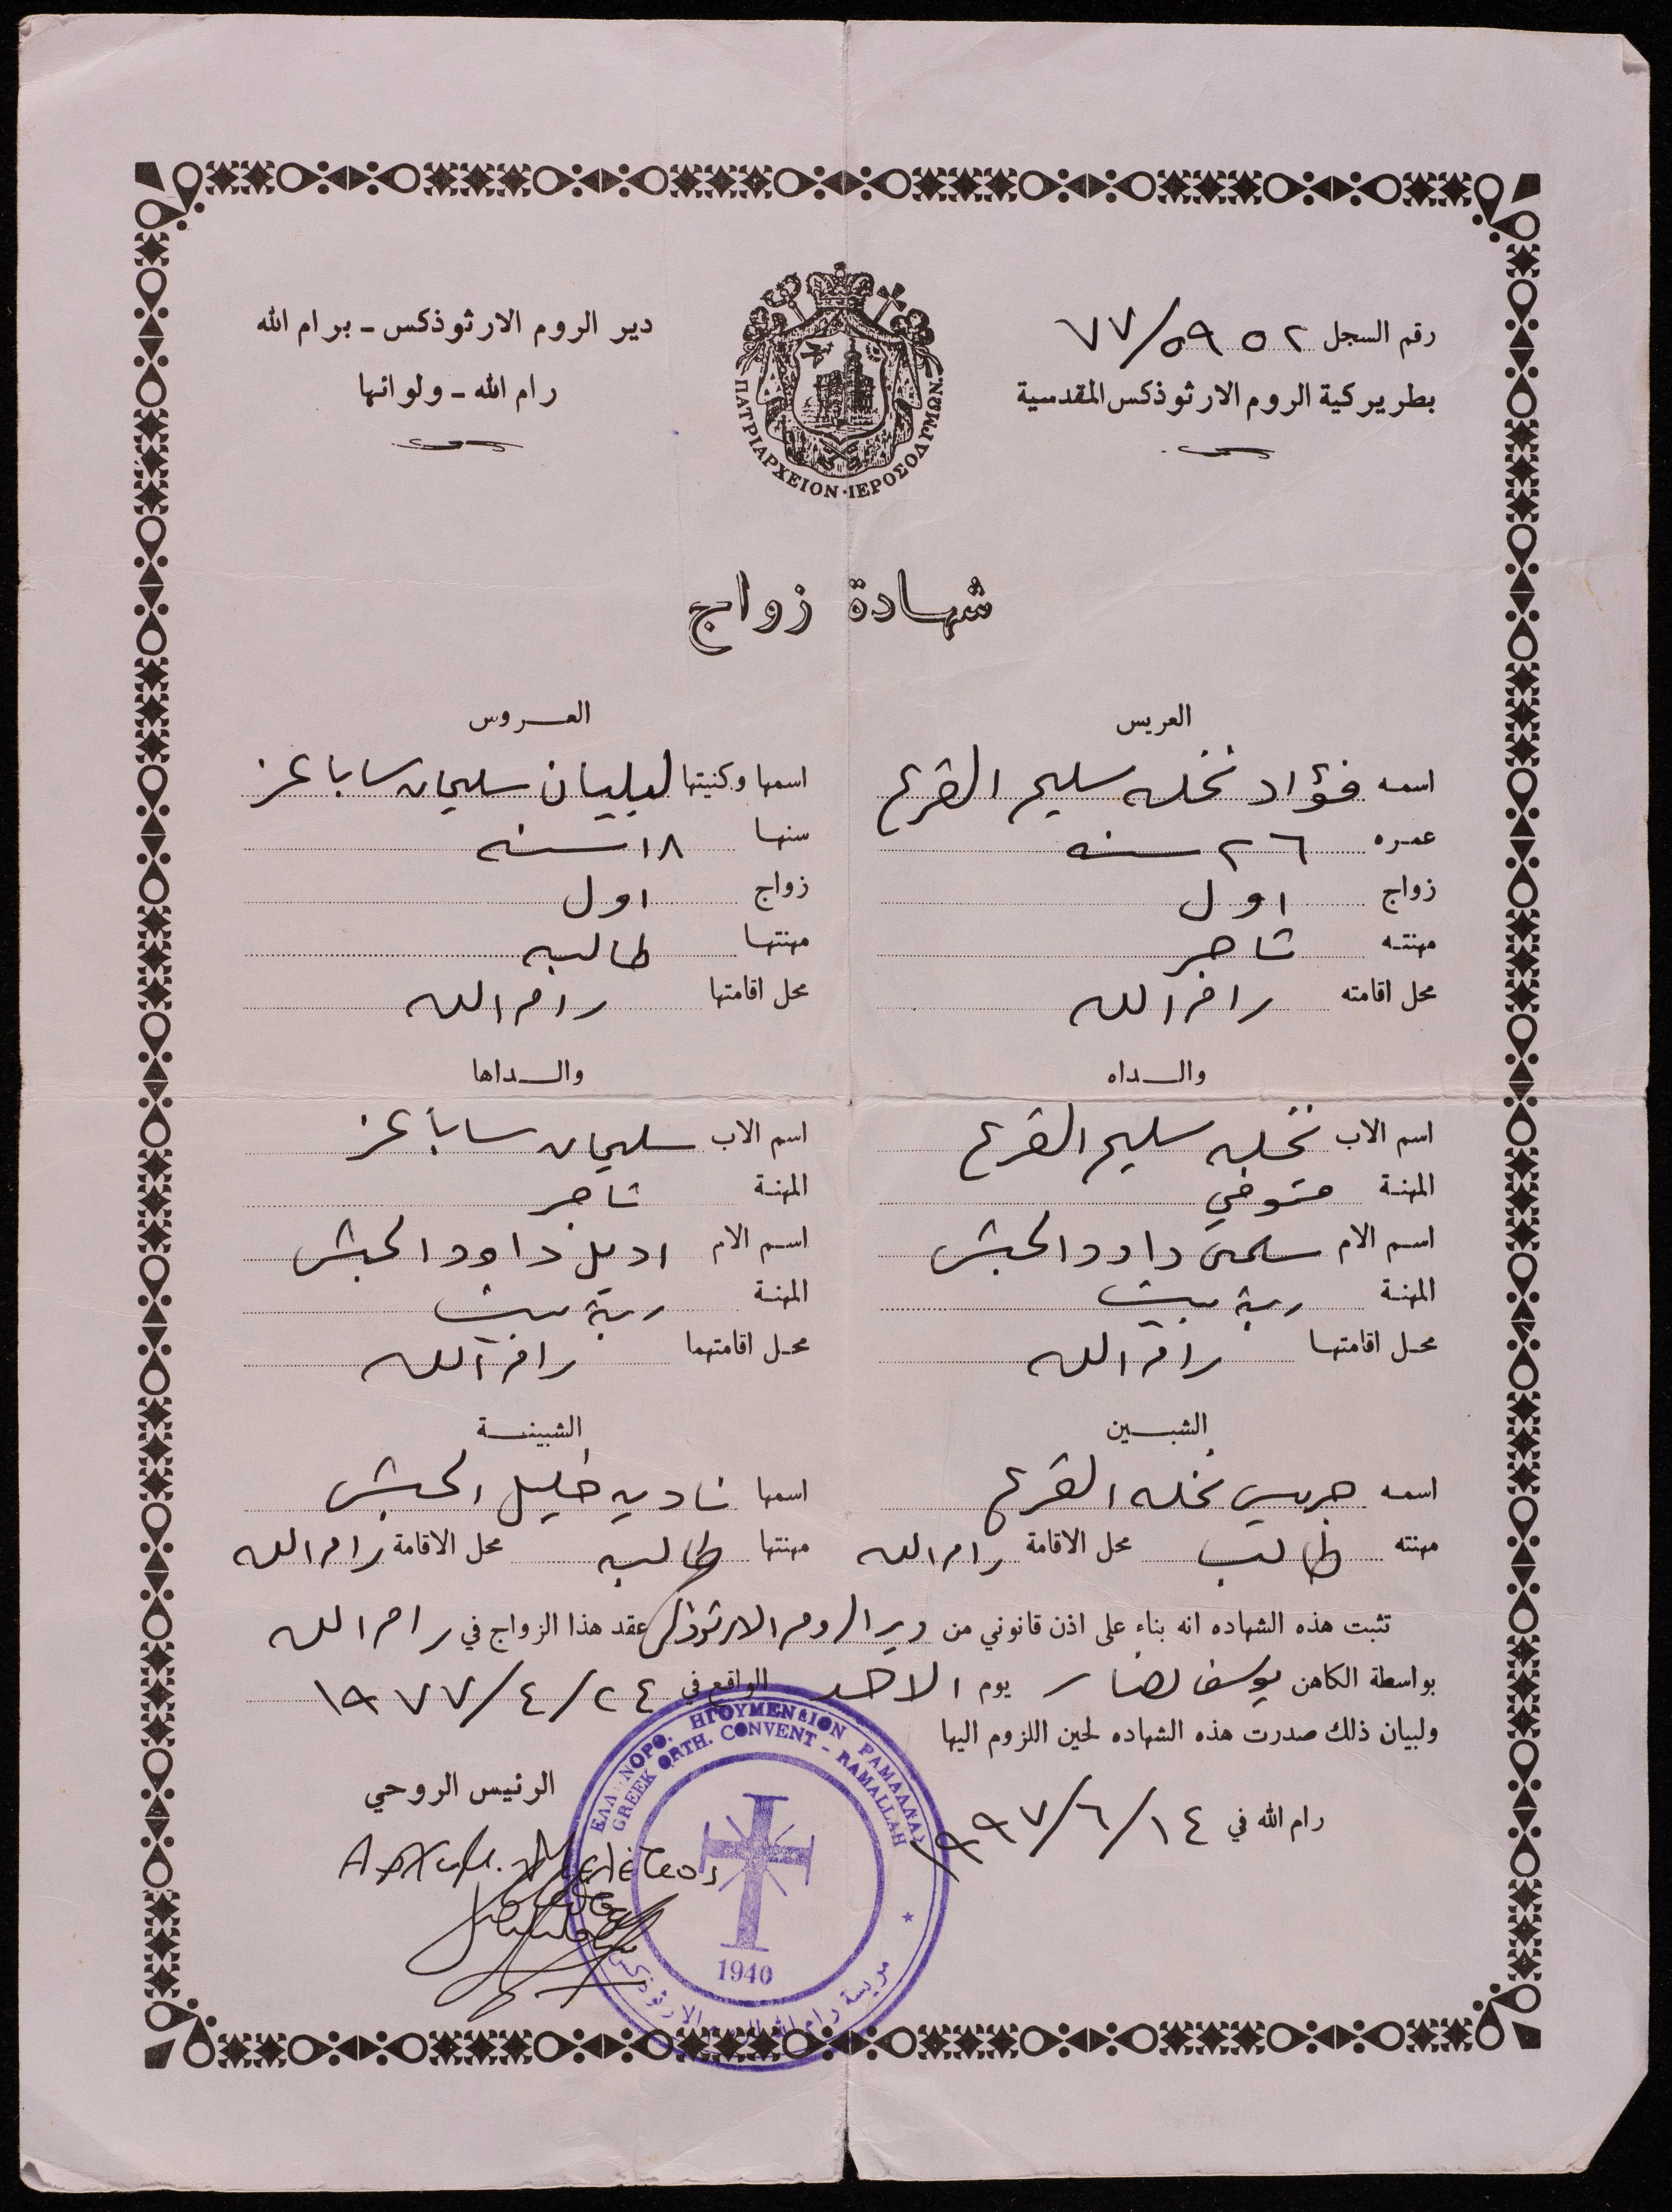 رقم السجل ٥٩٥٢/٧٧
بطريركية الروم الارثوذكس المقدسية
دير الروم الارثوذكس - برام الله
رام الله - ولوائها
ΠΑΤΡΙΑΡΧΕΙΟΝ·ΙΕΡΟΣΟΛΥΜΩΝ
شهادة زواج
العريس
اسمه فؤاد نخله سليم القرع
عمره ٢٦ سنه
زواج اول
مهنته تاجر
محل اقامته رام الله
والداه
اسم الاب نخله سليم القرع
المهنة متوفي
اسم الام سلمى داود الحبش
المهنة ربة بيت
محل اقامتها رام الله
الشبين
اسمه جريس نخله القرع
مهنته طالب محل الاقامة رام الله
العروس
اسمها وكنيتها ليليان سليمان سابا عز
سنها ١٨ سنه
زواج اول
مهنتها طالبه
محل اقامتها رام الله
والداها
اسم الاب سليمان سابا عز
المهنة تاجر
اسم الام اديل داود الحبش
المهنة ربة بيت
محل اقامتهما رام الله
الشبينة
اسمها ناديه خليل الحبش
مهنتها طالبه محل الاقامة رام الله
تثبت هذه الشهاده انه بناء على اذن قانوني من دير الروم الارثوذكس عقد هذا الزواج في رام الله
بواسطة الكاهن يوسف نصار يوم الاحد الواقع في ٢٤/٤/١٩٧٧
ولبيان ذلك صدرت هذه الشهاده لحين اللزوم اليها
رام الله في ١٤/٦/٩٩٧
الرئيس الروحي
Αρχιμ. Μελέτιος
ΗΓΟΥΜΕΝΕΙΟΝ ΡΑΜΑΛΛΑΣ
GREEK ORTH. CONVENT - RAMALLAH
1940